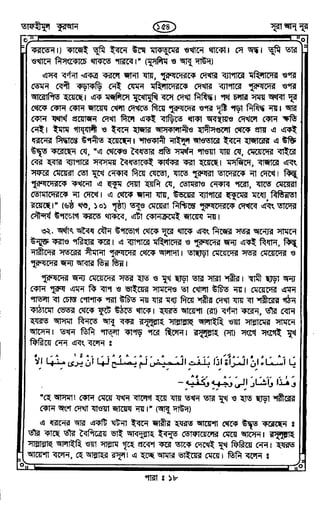 তাফহীমুল কুরআন
১৫৪
সূরা আন নূর
করতেন।) কাজেই তুমি ইবনে উম্মে মাকতূমের ওখানে থাকো। সে অন্ধ। তুমি তার
ওখানে নিসংকোচে থাকতে পারবে।" (মুসলিম ও আবু দাউদ)
এসব বর্ণনা একত্র করলে জানা যায়, পুরুষদেরকে দেখার ব্যাপারে মহিলাদের ওপর
তেমন বেশী কড়াকড়ি নেই যেমন মহিলাদেরকে দেখার ব্যাপারে পুরুষদের ওপর
আরোপিত হয়েছে। এক মজলিসে মুখোমুখি বসে দেখা নিষিদ্ধ। পথ চলার সময় অথবা দূর
থেকে কোন কোন জায়েয খেলা দেখতে গিয়ে পুরুষদের ওপর দৃষ্টি পড়া নিষিদ্ধ নয়। আর
কোন যথার্থ প্রয়োজন দেখা দিলে একই বাড়িতে থাকা অবস্থায়ও দেখলে কোন ক্ষতি
নেই। ইমাম গাযযালী ও ইবনে হাজার আসকালানীও হাদীসগুলো থেকে প্রায় এ একই
ধরনের সিদ্ধান্তে উপনীত হয়েছেন। শাওকানী নাইলুল আওতারে ইবনে হাজারের এ উক্তি
উদ্ধৃত করেছেন যে, "এ থেকেও বৈধতার প্রতি সমর্থন পাওয়া যায় যে, মেয়েদের বাইরে
বের হবার ব্যাপারে সবসময় বৈধতাকেই কার্যকর করা হয়েছে। মসজিদে, বাজারে এবং
সফরে মেয়েরা তো মুখে নেকাব দিয়ে যেতো, যাতে পুরুষরা তাদেরকে না দেখে। কিন্তু
পুরুষদেরকে কখনো এ হুকুম দেয়া হয়নি যে, তোমরাও নেকাব পরো, যাতে মেয়েরা
তোমাদেরকে না দেখে। এ থেকে জানা যায়, উভয়ের ব্যাপারে হুকুমের মধ্যে বিভিন্নতা
রয়েছে।" (৬ষ্ঠ খণ্ড, ১০১ পৃষ্ঠা) তবুও মেয়েরা নিশ্চিন্তে পুরুষদেরকে দেখবে এবং তাদের
সৌন্দর্য উপভোগ করতে থাকবে, এটা কোনক্রমেই জায়েয নয়।
৩২. অর্থাৎ অবৈধ যৌন উপভোগ থেকে দূরে থাকে এবং নিজের সতর অন্যের সামনে
উন্মুক্ত করাও পরিহার করে। এ ব্যাপারে মহিলাদের ও পুরুষদের জন্য একই বিধান, কিন্তু
নারীদের সতরের সীমানা পুরুষদের থেকে আলাদা। তাছাড়া মেয়েদের সতর মেয়েদের ও
পুরুষদের জন্য আবার ভিন্ন ভিন্ন।
পুরুষদের জন্য মেয়েদের সতর হাত ও মুখ ছাড়া তার সারা শরীর। স্বামী ছাড়া অন্য
কোন পুরুষ এমন কি বাপ ও ভাইয়ের সামনেও তা খোলা উচিত নয়। মেয়েদের এমন
পাতলা বা চোস্ত পোশাক পরা উচিত নয় যার মধ্য দিয়ে শরীর দেখা যায় বা শরীরের গঠন
কাঠামো ভেতর থেকে ফুটে উঠতে থাকে। হযরত আয়েশা (রা) বর্ণনা করেন, তাঁর বোন
হযরত আসমা বিনতে আবু বকর রসূলুল্লাহ সাল্লাল্লাহু আলাইহি ওয়া সাল্লামের সামনে
আসেন। তখন তিনি পাতলা কাপড় পরে ছিলেন। রসূলুল্লাহ (সা) সংগে সংগেই মুখ
ফিরিয়ে নেন এবং বলেন :
يَا أَسْمَاءُ إِنَّ الْمَرْأَةَ إِذَا بَلَغَتِ الْمَحِيضَ لَمْ يَصْلُحْ لَهَا أَنْ يُرَى مِنْهَا إِلَّا
هٰذَا وَهٰذَا وَأَشَارَ إِلَى وَجْهِهِ وَكَفَّيْهِ -
"হে আসমা! কোন মেয়ে যখন বালেগ হয়ে যায় তখন তার মুখ ও হাত ছাড়া শরীরের
কোন অংশ দেখা যাওয়া জায়েয নয়।" (আবু দাউদ)
এ ধরনের আর একটি ঘটনা ইবনে জারীর হযরত আয়েশা থেকে উদ্ধৃত করেছেন :
তাঁর কাছে তাঁর বৈপিত্রেয় ভাই আবদুল্লাহ ইবনুত তোফায়েলের মেয়ে আসেন। রসূলুল্লাহ
সাল্লাল্লাহু আলাইহি ওয়া সাল্লাম গৃহে প্রবেশ করে তাকে দেখেই মুখ ফিরিয়ে নেন। হযরত
আয়েশা বলেন, হে আল্লাহর রসূল! এ হচ্ছে আমার ভাইয়ের মেয়ে। তিনি বলেন :
পারা : ১৮